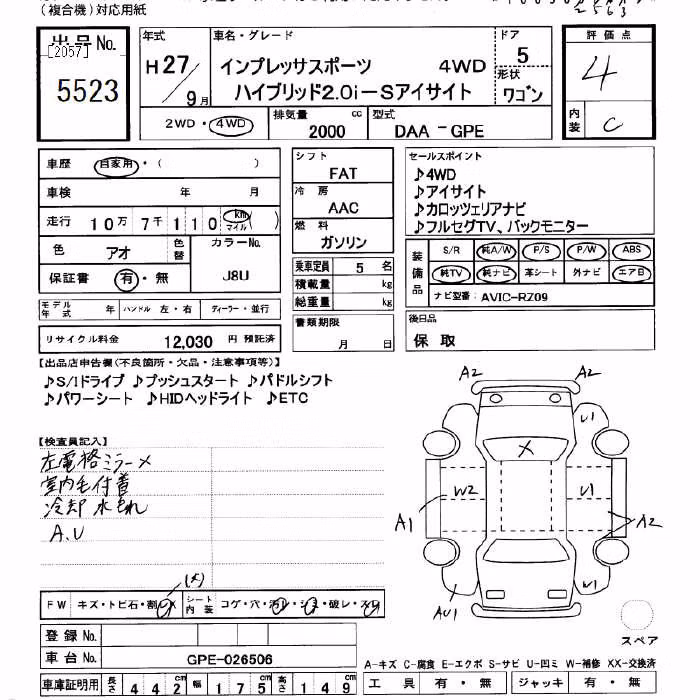 (複合機)対応用紙
2563
出品No.
[2057]
5523
年式
H27/9月
車名・グレード
インプレッサスポーツ 4WD
ハイブリッド2.0i-Sアイサイト
ドア
5
形状
ワゴン
評価点
4
内装
C
2WD・4WD
排気量
2000 cc
型式
DAA-GPE
車歴 自家用・( )
車検 年 月
走行 10万7千110 km マイル ( )
色 アオ 色替
カラーNo. J8U
保証書 有・無
モデル年式 年 ハンドル 左・右 ディーラー・並行
リサイクル料金 12,030 円 預託済
シフト
FAT
冷房
AAC
燃料
ガソリン
乗車定員 5 名
積載量 kg
総重量 kg
書類期限
月 日
セールスポイント
♪4WD
♪アイサイト
♪カロッツェリアナビ
♪フルセグTV、バックモニター
装備品
S/R 純A/W P/S P/W ABS
純TV 純ナビ 革シート 外ナビ エアB
ナビ型番: AVIC-RZ09
後日品
保取
【出品店申告欄(不良箇所・欠品・注意事項等)】
♪S/Iドライブ ♪プッシュスタート ♪パドルシフト
♪パワーシート ♪HIDヘッドライト ♪ETC
【検査員記入】
左電格ミラーメ
室内毛付着
冷却水もれ
A.U
(メ)
FW キズ・トビ石・割・X シート内装 コゲ・穴・汚レ・シミ・破レ・スレ
登録No.
車台No. GPE-026506
車庫証明用 長さ 442 cm 幅 175 cm 高さ 149 cm
A2
A2
U1
X
W2
U1
A1
A2
AU1
スペア
A-キズ C-腐食 E-エクボ S-サビ U-凹ミ W-補修 XX-交換済
工具 有・無 ジャッキ 有・無